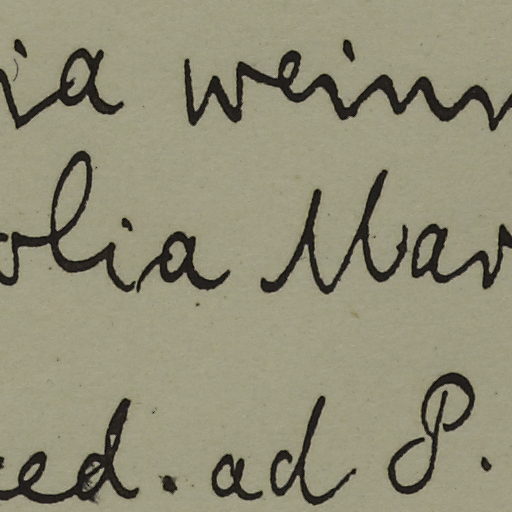 ia weinn
olia Mar
ed. ad P.